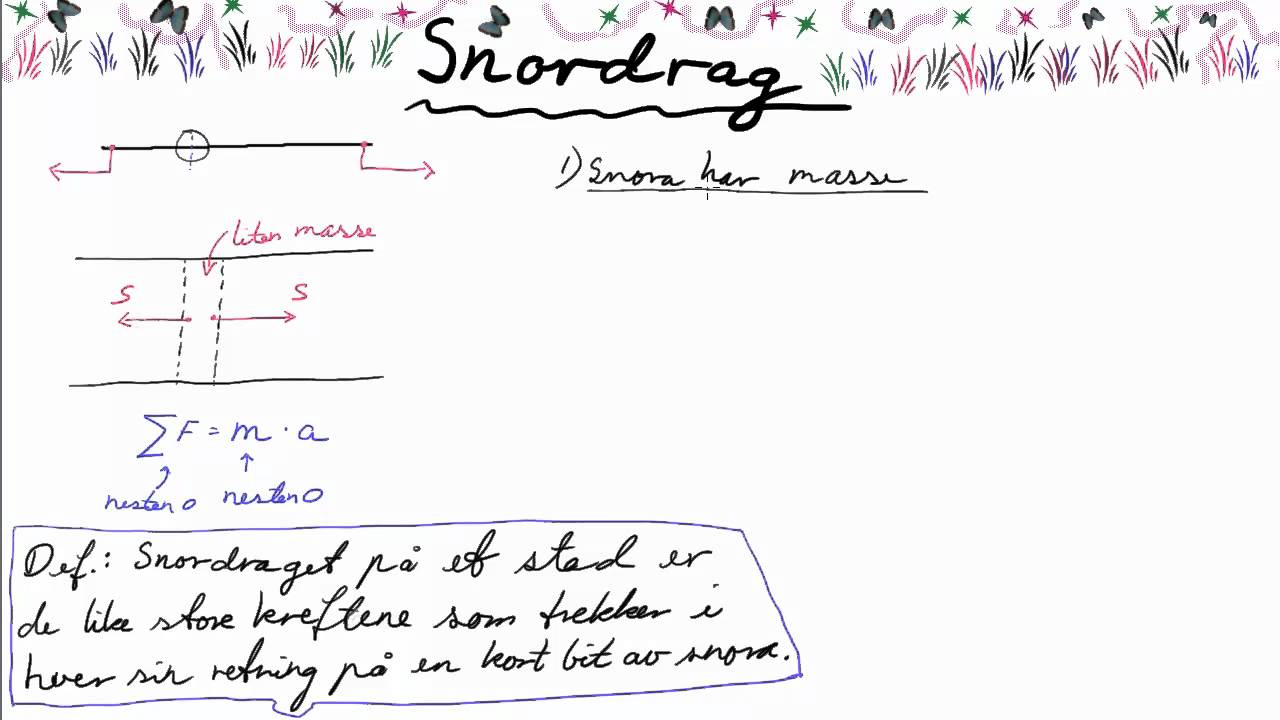 Snordrag
1) Snora har masse
liten masse
S S
∑F = m · a
nesten 0 nesten 0
Def.: Snordraget på et sted er
de like store kreftene som trekker i
hver sin retning på en kort bit av snora.